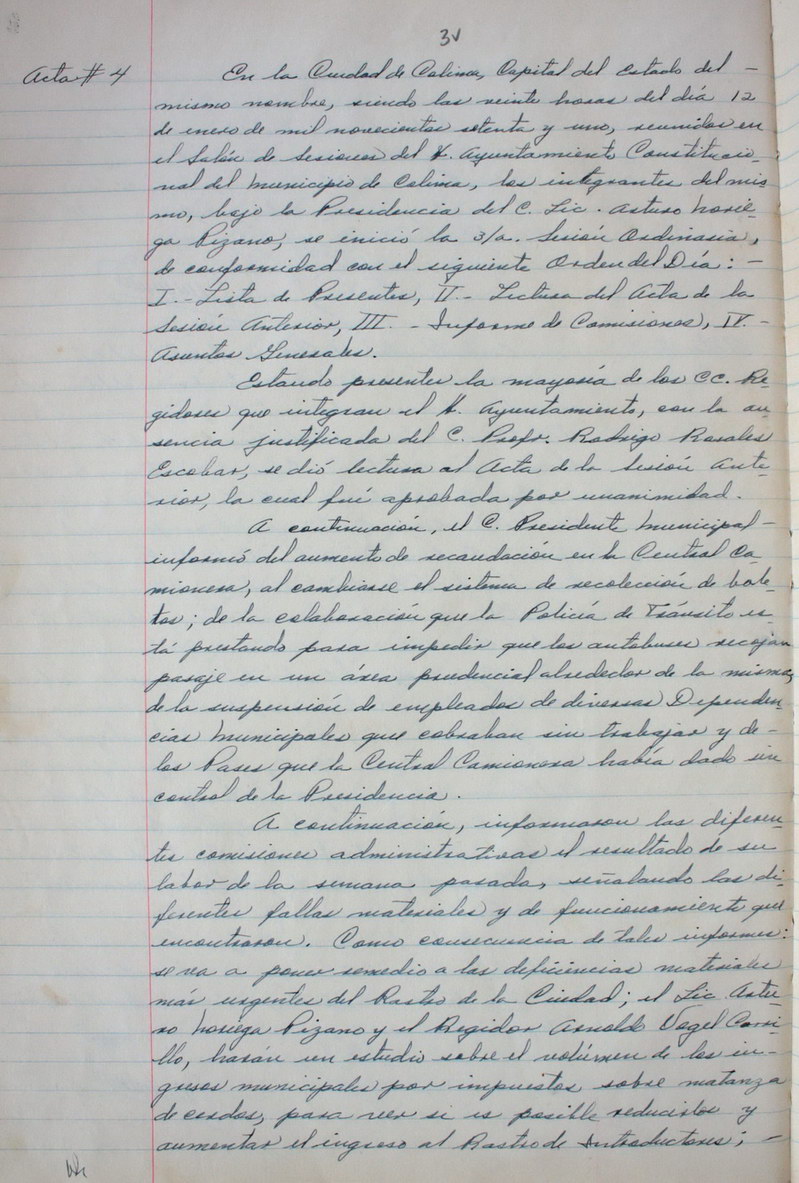 3v
Acta # 4
En la Ciudad de Colima, Capital del Estado del -
mismo nombre, siendo las veinte horas del día 12
de enero de mil novecientos setenta y uno, reunidos en
el Salón de Sesiones del H. Ayuntamiento Constitucio-
nal del Municipio de Colima, los integrantes del mis-
mo, bajo la Presidencia del C. Lic. Arturo Norie-
ga Pizano, se inició la 3/a. Sesión Ordinaria,
de conformidad con el siguiente Orden del Día: -
I. - Lista de Presentes, II. - Lectura del Acta de la
Sesión Anterior, III. - Informe de Comisiones, IV. -
Asuntos Generales.
Estando presentes la mayoría de los CC. Re-
gidores que integran el H. Ayuntamiento, con la au-
sencia justificada del C. Profr. Rodrigo Rosales
Escobar, se dió lectura al Acta de la Sesión Ante-
rior, la cual fué aprobada por unanimidad.
A continuación, el C. Presidente Municipal -
informó del aumento de recaudación en la Central Ca-
mionera, al cambiarse el sistema de recolección de bole-
tos; de la colaboración que la Policía de Tránsito es-
tá prestando para impedir que los autobuses recojan
pasaje en un área prudencial alrededor de la misma,
de la suspensión de empleados de diversas Dependen-
cias Municipales que cobraban sin trabajar y de -
los Pases que la Central Camionera había dado sin
control de la Presidencia.
A continuación, informaron las diferen-
tes comisiones administrativas el resultado de su
labor de la semana pasada, señalando las di-
ferentes fallas materiales y de funcionamiento que
encontraron. Como consecuencia de tales informes:
se va a poner remedio a las deficiencias materiales
más urgentes del Rastro de la Ciudad; el Lic. Artu-
ro Noriega Pizano y el Regidor Arnoldo Vogel Carri-
llo, harán un estudio sobre el volúmen de los in-
gresos municipales por impuestos sobre matanza
de cerdos, para ver si es posible reducirlos y
aumentar el ingreso al Rastro de Introductores; -